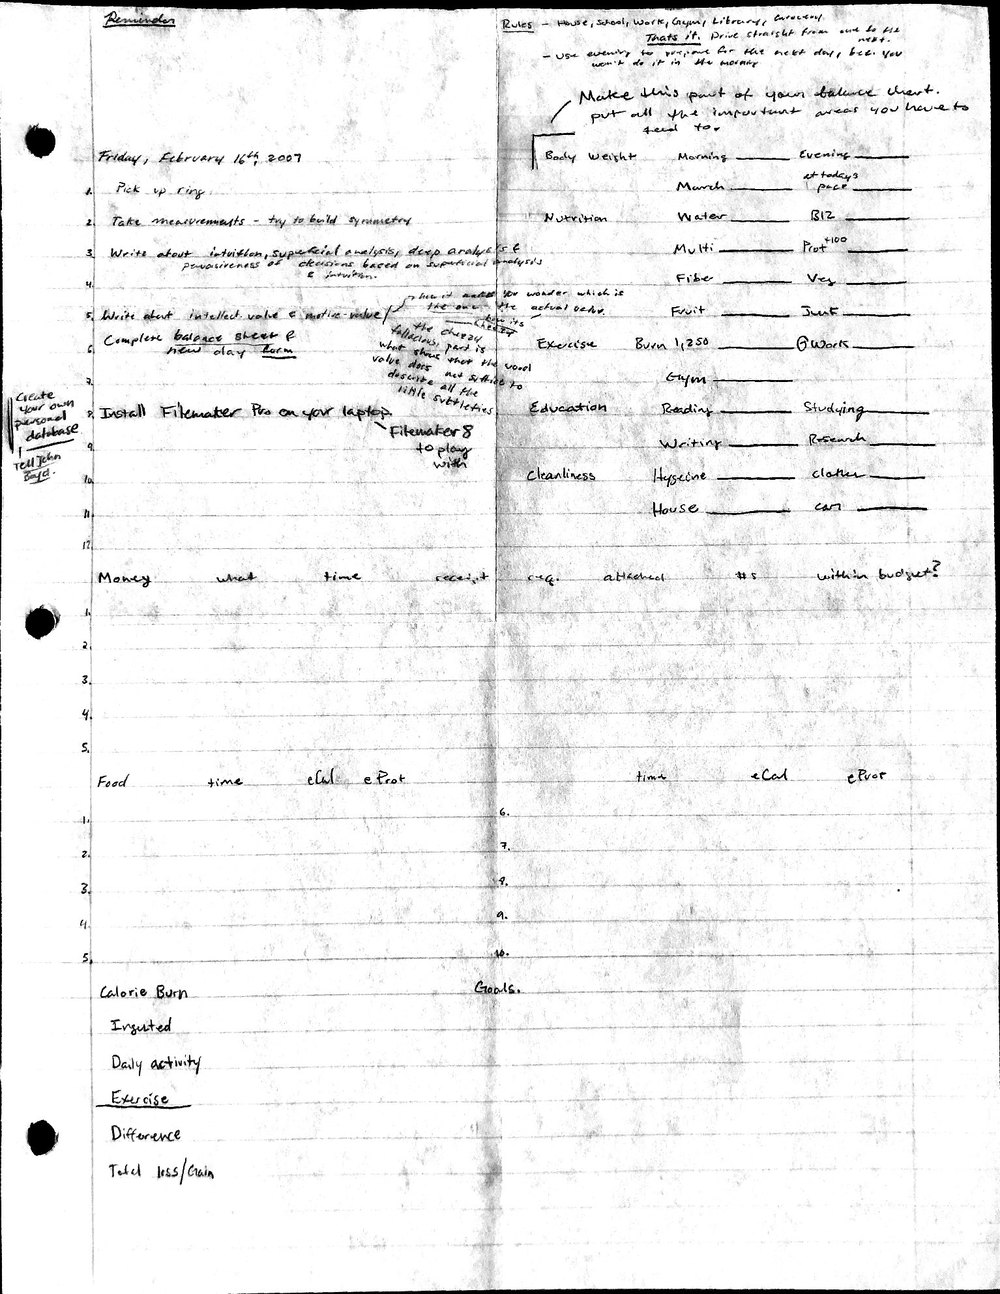 Reminder
Rules - House, School, Work, Gym, Library, Grocery.
Thats it. Drive straight from one to the next.
- Use evening to prepare for the next day, bec. you
won't do it in the morning
Make this part of your balance chart.
put all the important areas you have to
tend to.
Friday, February 16th, 2007
1. Pick up ring
2. Take measurements - try to build symmetry
3. Write about intuition, superficial analysis, deep analysis &
pervasiveness of decisions based on superficial analysis
& intuition.
4.
5. Write about intellect value & motive value
how it makes you wonder which is
the one - the actual value.
the cheezy,
fallacious, part is
what shows that the word
value does not suffice to
describe all the
little subtleties
Complete balance sheet &
6. new day form
7.
8. Install Filemaker Pro on your laptop
Filemaker 8
to play
with
Create
your own
personal
database
Tell John
Boyd.
9.
10.
11.
12.
Body Weight Morning Evening
March at today's
pace
Nutrition Water B12
Multi Prot +100
Fiber Veg
Fruit Junk
Exercise Burn 1,250 @Work
Gym
Education Reading Studying
Writing Research
Cleanliness Hygeine clothes
House car
Money what time receipt req. attached #s within budget?
1.
2.
3.
4.
5.
Food time eCal eProt time eCal eProt
1. 6.
2. 7.
3. 8.
4. 9.
5. 10.
Calorie Burn Goals.
Ingested
Daily activity
Exercise
Difference
Total loss/Gain